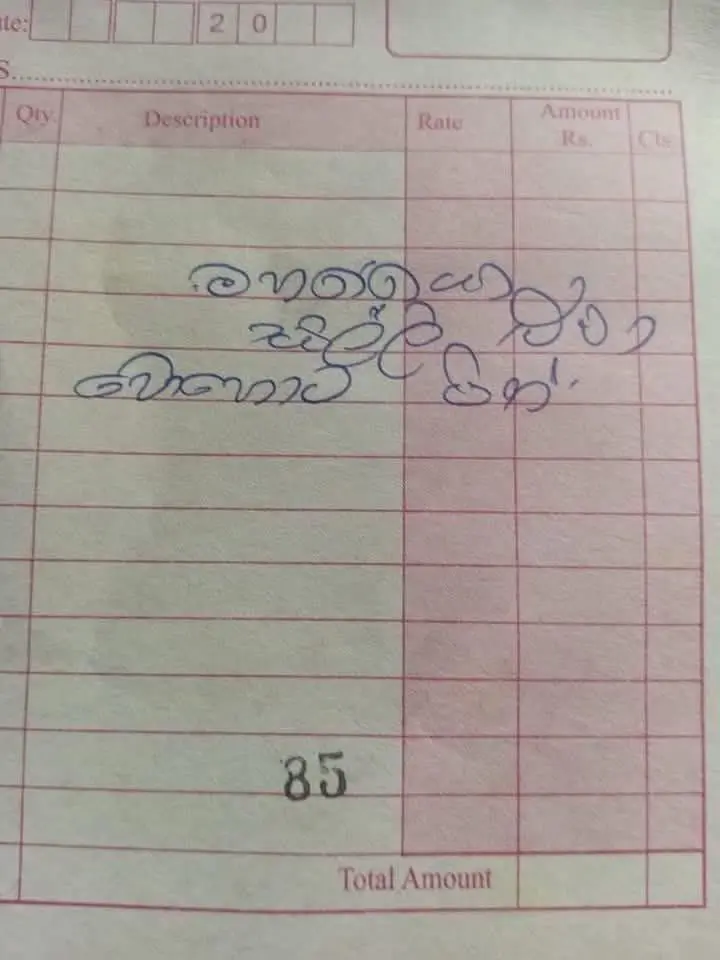 ate: 2 0
S.
Qty. Description Rate Amount Rs. Cts.
මහත්තයො
සල්ලි
බොහොට පින්.
85
Total Amount